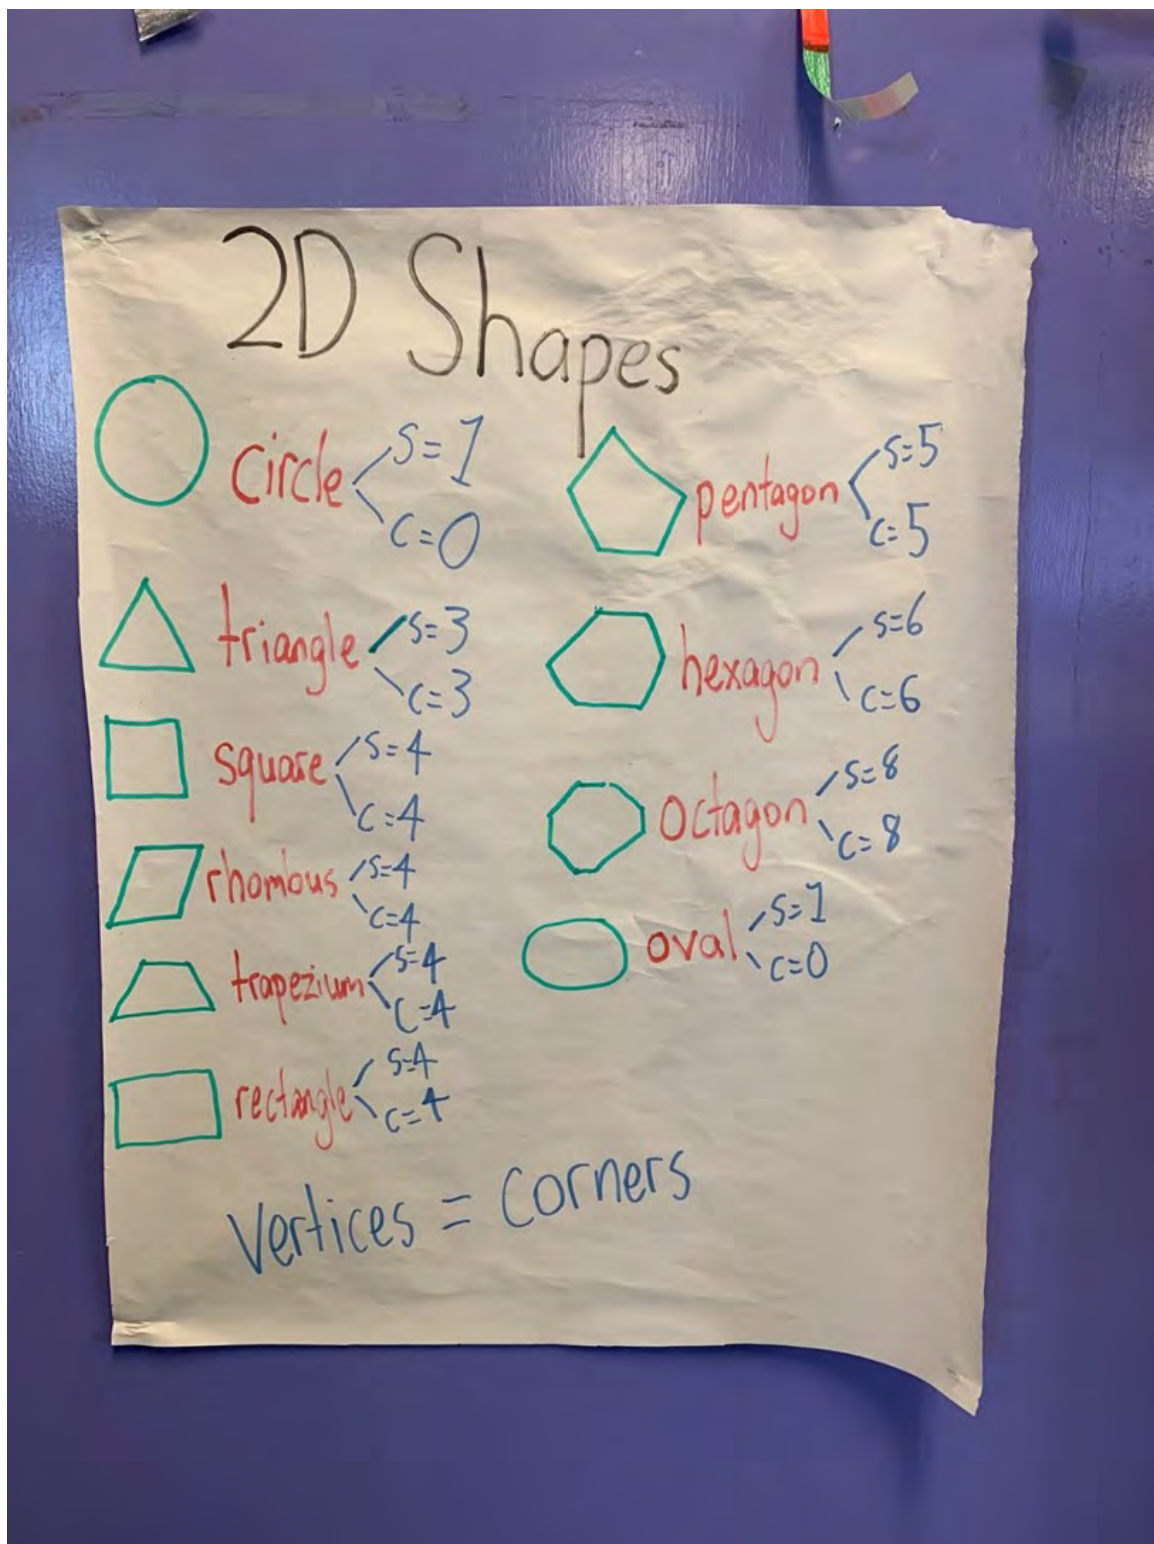 2D Shapes
circle
s=1
c=0
triangle
s=3
c=3
square
s=4
c=4
rhombus
s=4
c=4
trapezium
s=4
c=4
rectangle
s=4
c=4
pentagon
s=5
c=5
hexagon
s=6
c=6
octagon
s=8
c=8
oval
s=1
c=0
vertices = corners